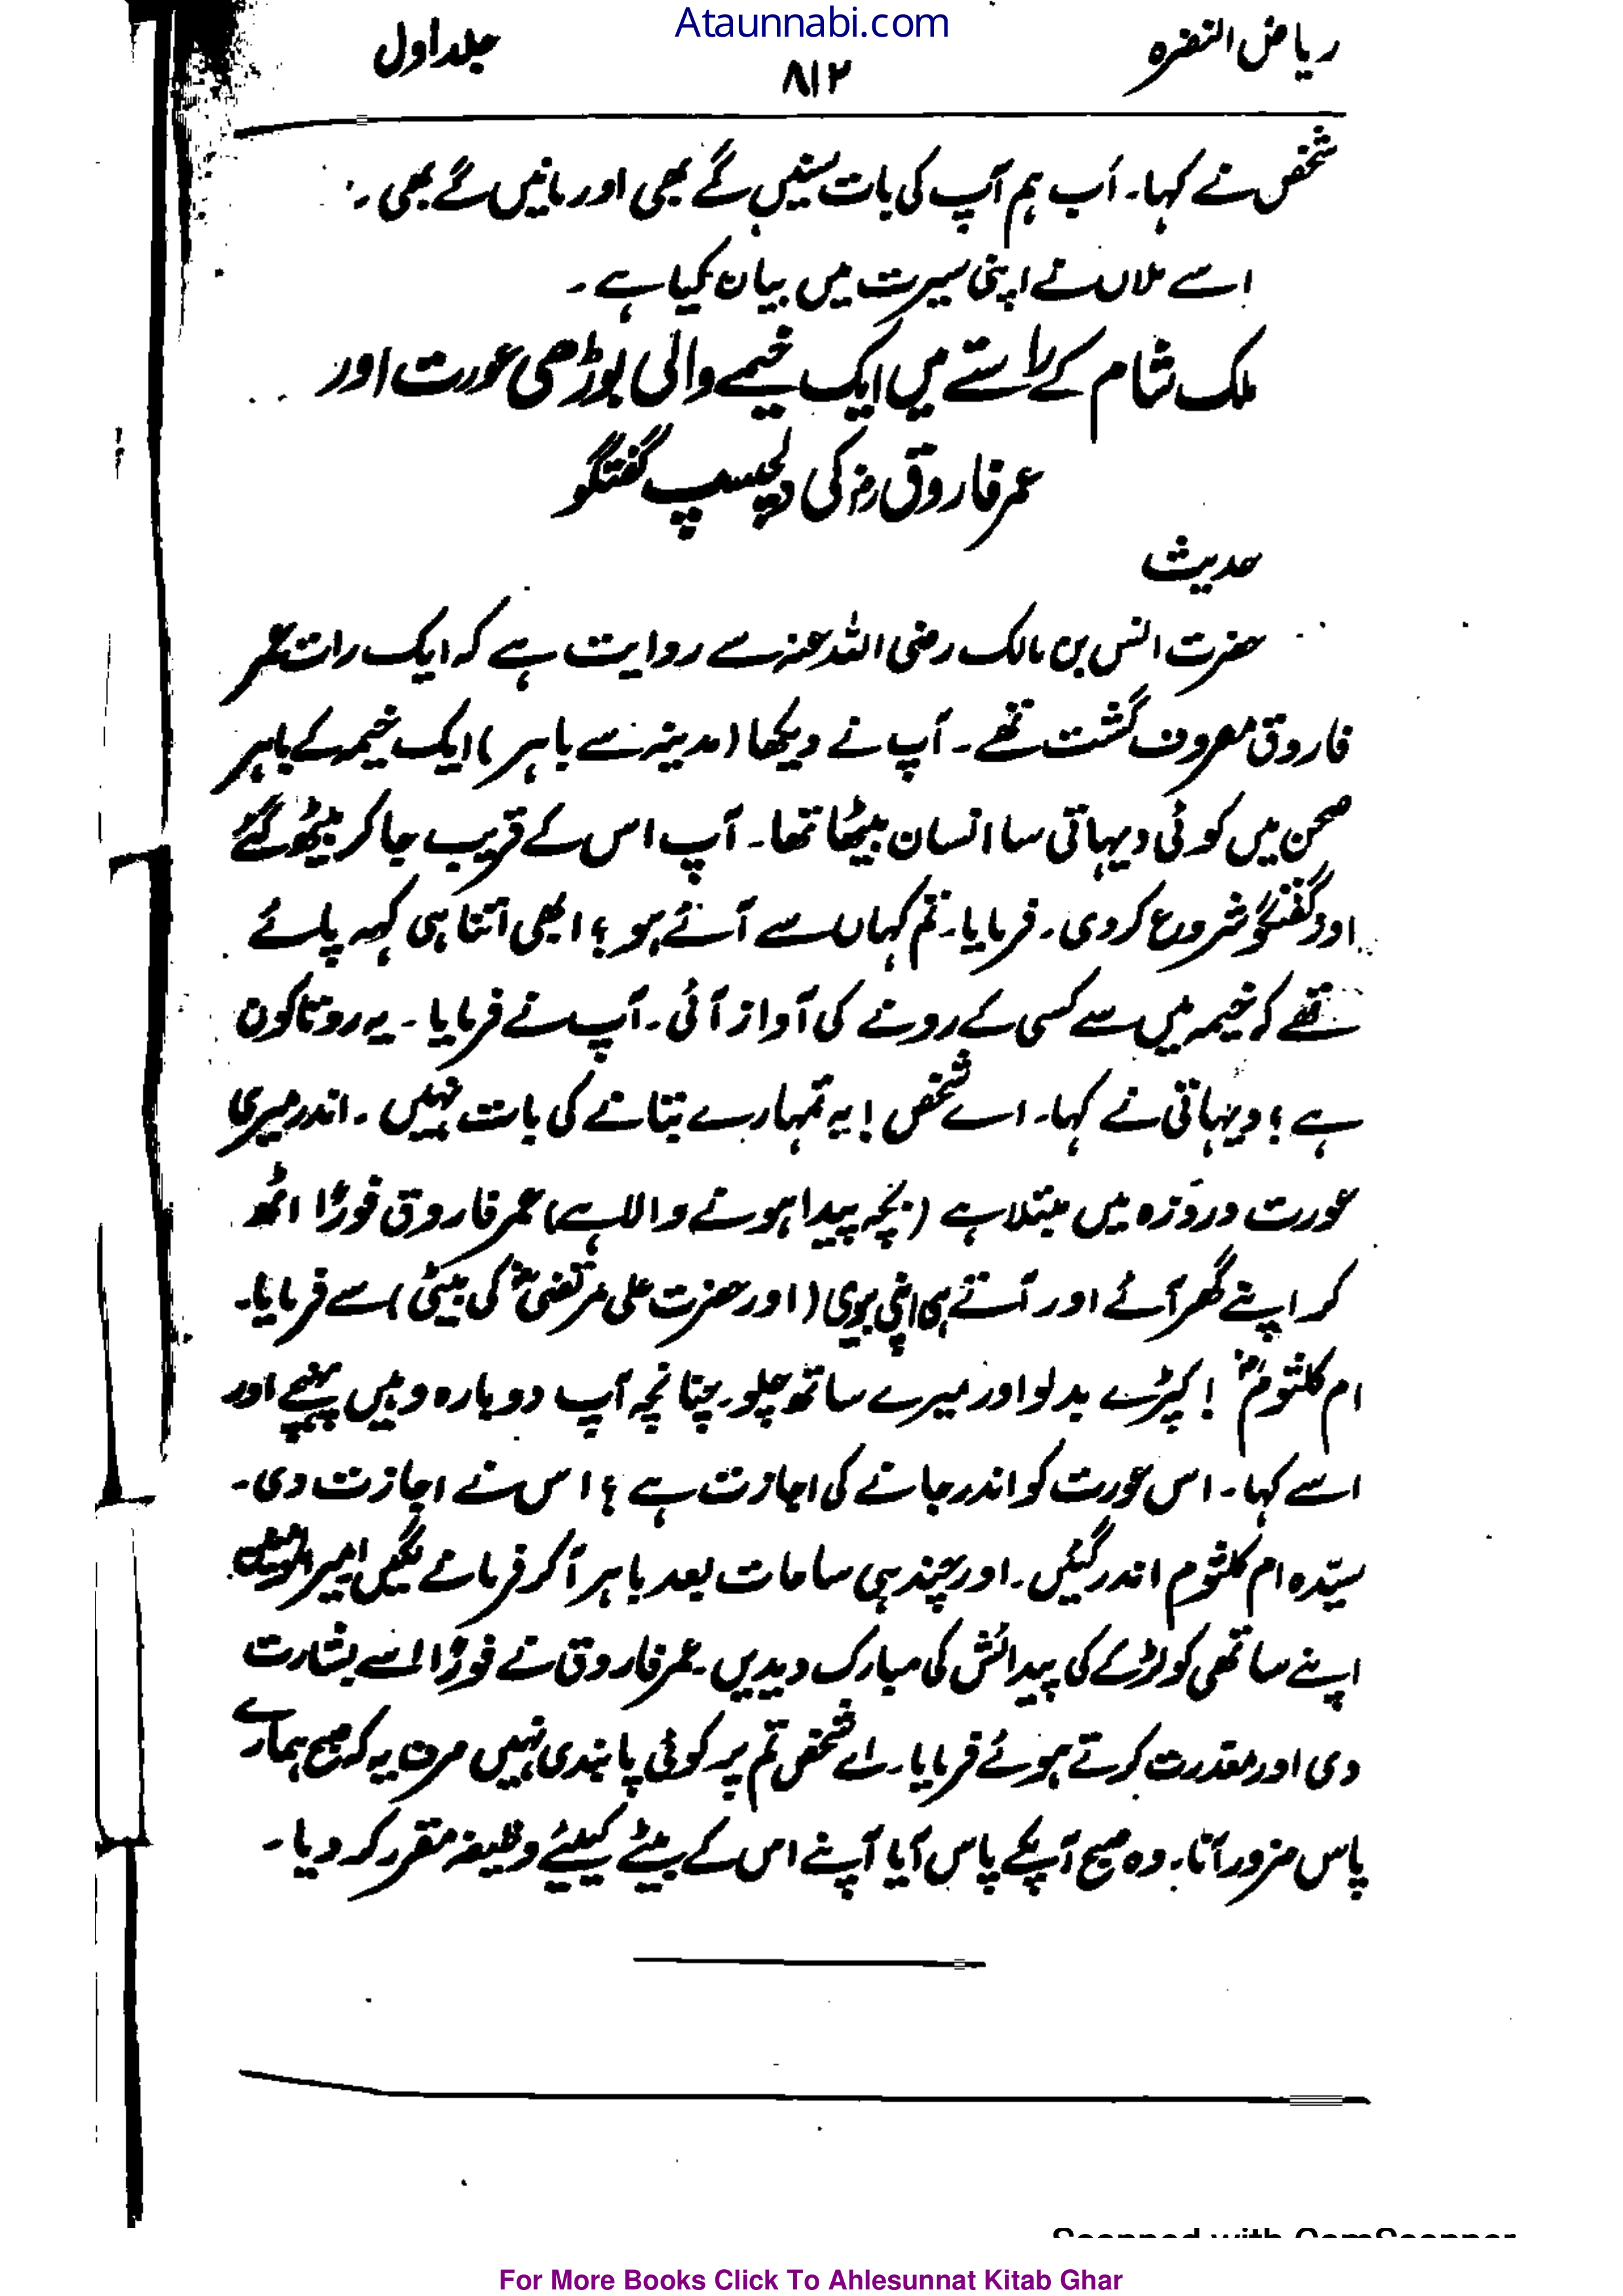 Ataunnabi.com
ریاض النضرہ ۸۱۲ جلد اول
شخص نے کہا۔ اَب ہم آپ کی بات سنیں گے بھی اور مانیں گے بھی۔
اسے ملاں نے اپنی سیرت میں بیان کیا ہے۔
ملک شام کے راستے میں ایک خیمے والی بوڑھی عورت اور
عمر فاروق رضؓ کی دلچسپ گفتگو
حدیث
حضرت انس بن مالک رضی اللہ عنہ سے روایت ہے کہ ایک رات عمر
فاروق مصروف گشت تھے۔ آپ نے دیکھا (مدینہ سے باہر) ایک خیمہ کے باہر
صحن میں کوئی دیہاتی سا انسان بیٹھا تھا۔ آپ اس کے قریب جا کر بیٹھ گئے
اور گفتگو شروع کر دی۔ فرمایا۔ تم کہاں سے آئے ہو؟ ابھی اتنا ہی کہہ پائے
تھے کہ خیمہ میں سے کسی کے رونے کی آواز آئی۔ آپ نے فرمایا۔ یہ روتا کون
ہے؟ دیہاتی نے کہا۔ اے شخص! یہ تمہارے بتانے کی بات نہیں۔ اندر میری
عورت دردَزہ میں مبتلا ہے (بچہ پیدا ہونے والا ہے) عمر فاروق فورًا اٹھ
کر اپنے گھر آئے اور آتے ہی اپنی بیوی (اور حضرت علی مرتضیٰؓ کی بیٹی) سے فرمایا۔
ام کلثومؓ! کپڑے بدلو اور میرے ساتھ چلو۔ چنانچہ آپ دوبارہ وہیں پہنچے اور
اسے کہا۔ اس عورت کو اندر جانے کی اجازت ہے؟ اس نے اجازت دی۔
سیّدہ ام کلثوم اندر گئیں۔ اور چند ہی ساعات بعد باہر آ کر فرمانے لگیں امیر المومنین
اپنے ساتھی کو لڑکے کی پیدائش کی مبارک دیدیں۔ عمر فاروق نے فورًا اسے بشارت
دی اور معذرت کرتے ہوئے فرمایا۔ اے شخص تم پر کوئی پابندی نہیں صرف یہ کہ صبح ہمارے
پاس ضرور آنا۔ وہ صبح آپکے پاس آیا آپنے اس کے بیٹے کیلئے وظیفہ مقرر کر دیا۔
Scanned with CamScanner
For More Books Click To Ahlesunnat Kitab Ghar